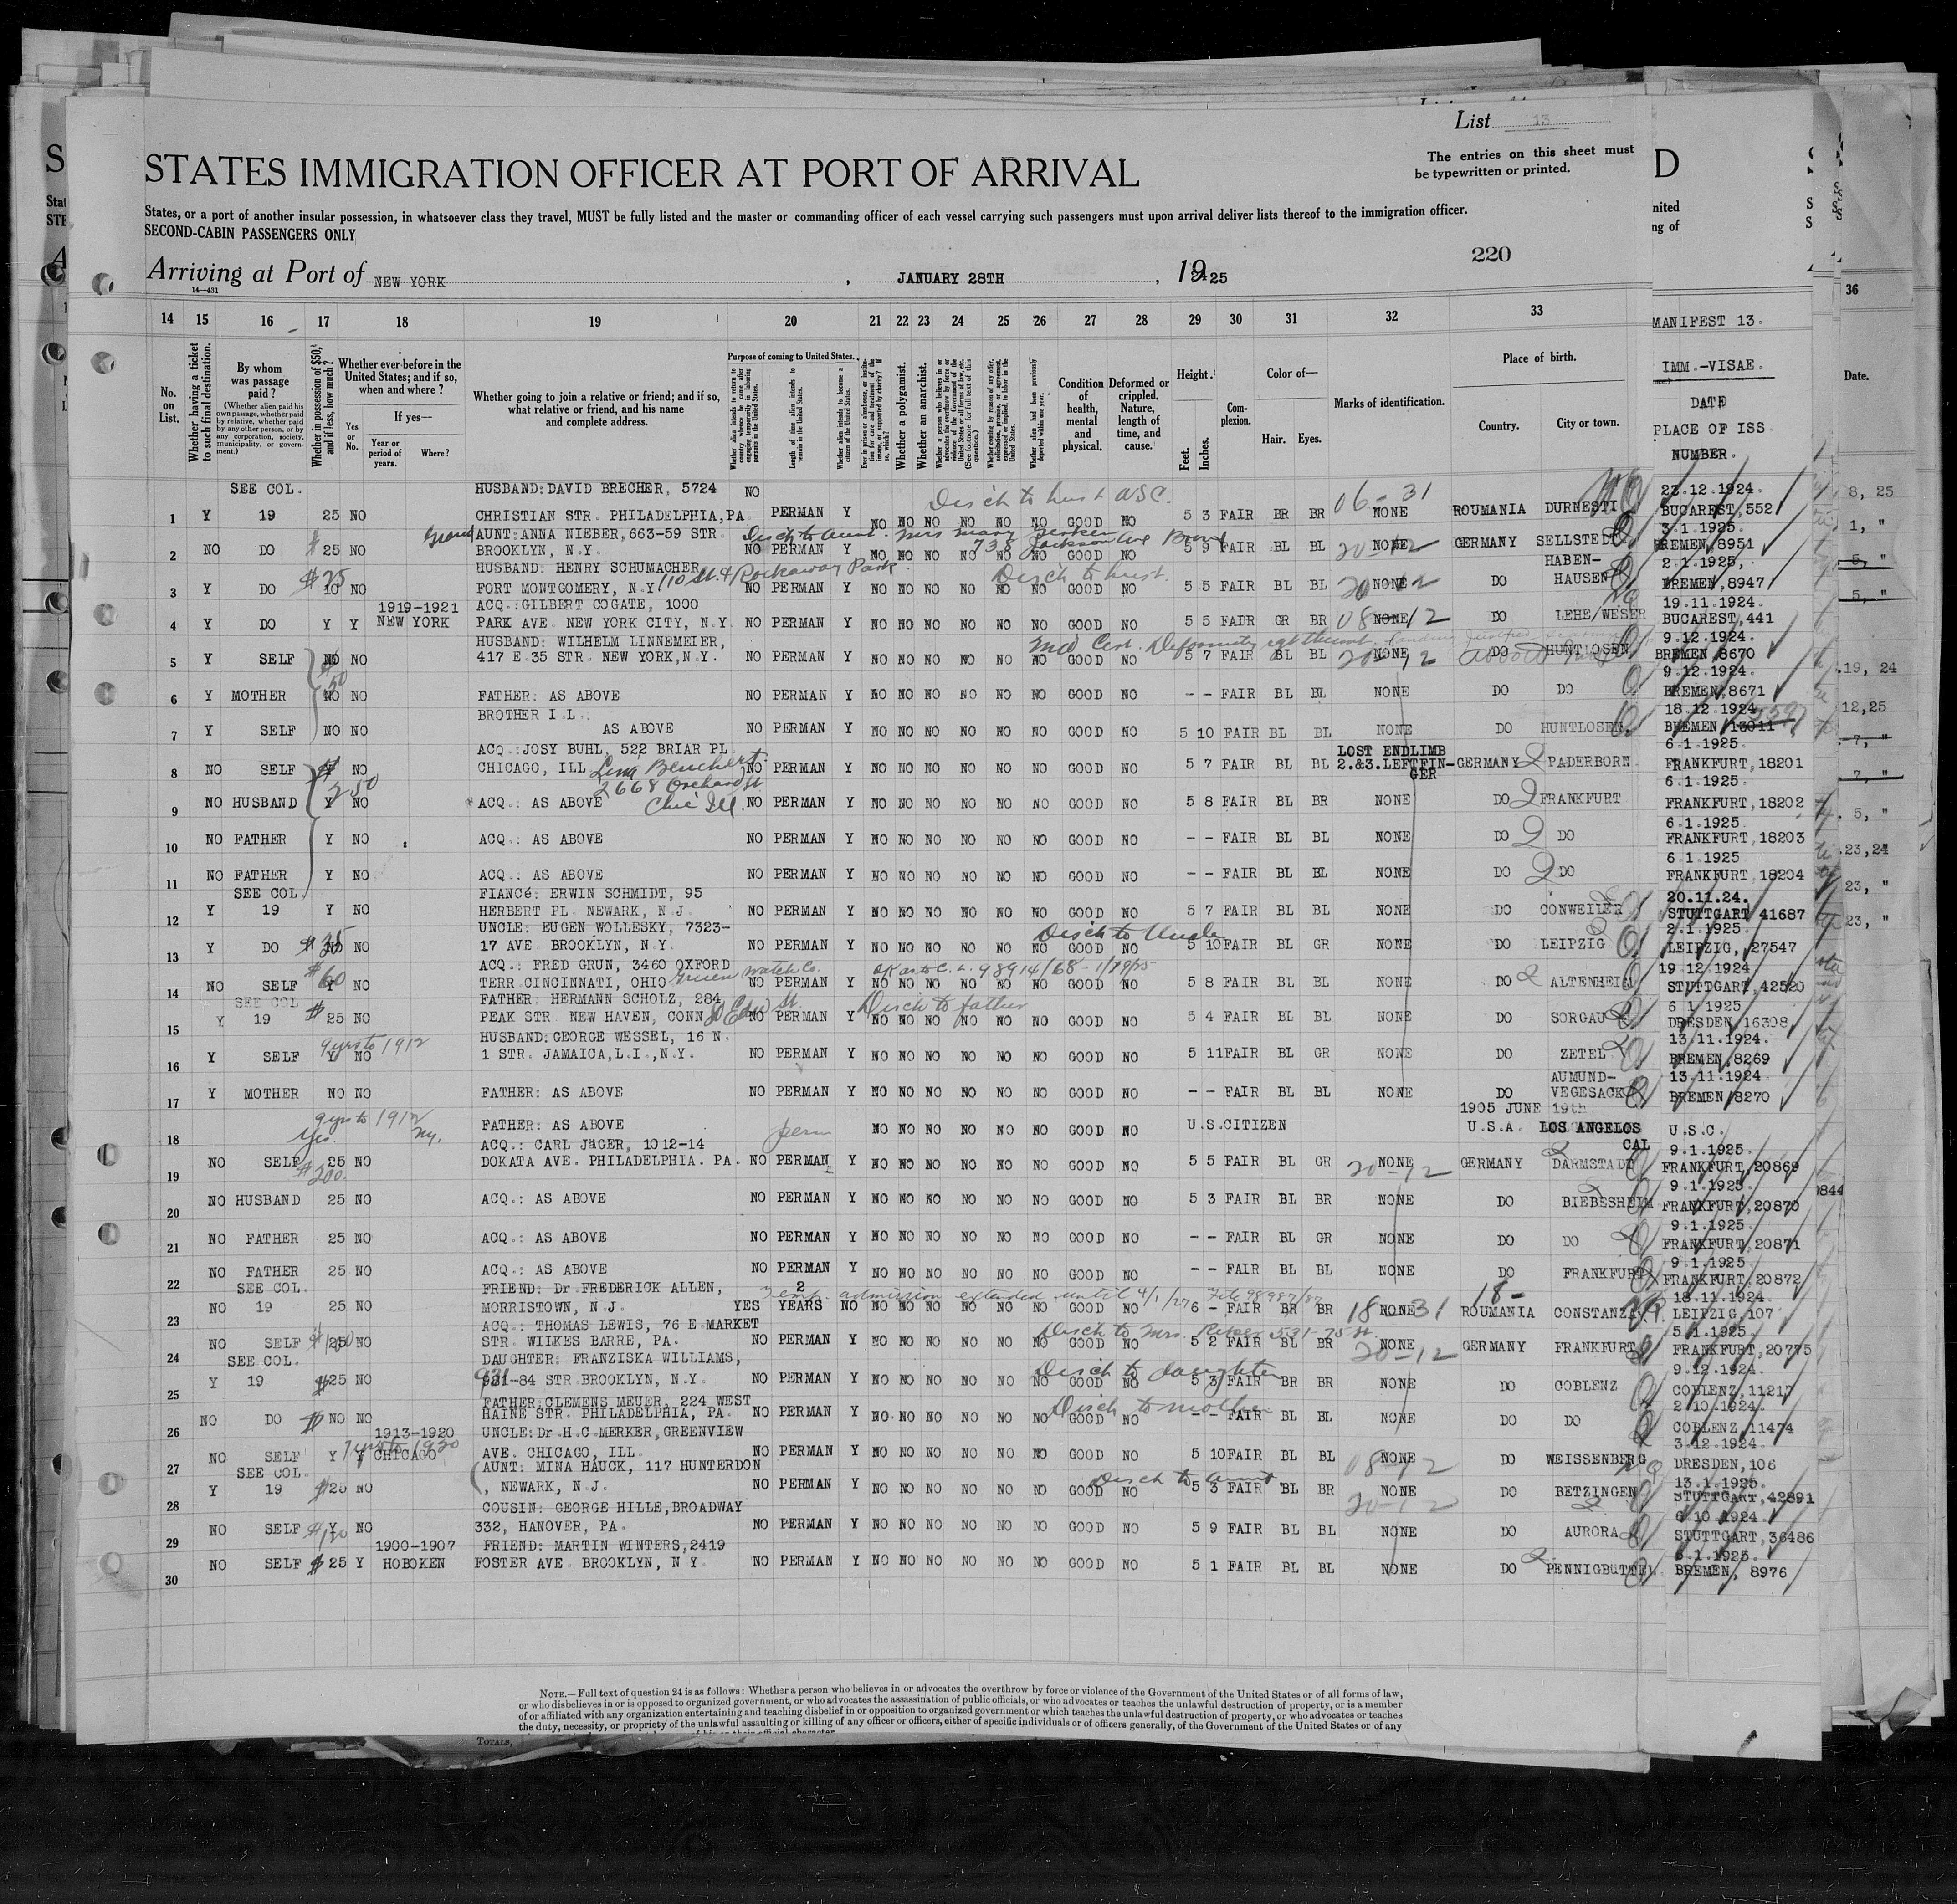 List 13
The entries on this sheet must
be typewritten or printed.
STATES IMMIGRATION OFFICER AT PORT OF ARRIVAL
States, or a port of another insular possession, in whatsoever class they travel, MUST be fully listed and the master or commanding officer of each vessel carrying such passengers must upon arrival deliver lists thereof to the immigration officer.
SECOND-CABIN PASSENGERS ONLY
220
Arriving at Port of NEW YORK , JANUARY 28TH , 1925
14—431
14 15 16 17 18 19 20 21 22 23 24 25 26 27 28 29 30 31 32 33 36
No. on List.
Whether having a ticket to such final destination.
By whom was passage paid?
(Whether alien paid his own passage, whether paid by relative, whether paid by any other person, or by any corporation, society, municipality, or government.)
Whether in possession of $50, and if less, how much?
Whether ever before in the United States; and if so, when and where?
Yes or No.
If yes—
Year or period of years.
Where?
Whether going to join a relative or friend; and if so, what relative or friend, and his name and complete address.
Purpose of coming to United States.
Length of time alien intends to remain in the United States.
Whether alien intends to become a citizen of the United States.
Whether a polygamist.
Whether an anarchist.
Condition of health, mental and physical.
Deformed or crippled. Nature, length of time, and cause.
Height.
Feet. Inches.
Complexion.
Color of—
Hair. Eyes.
Marks of identification.
Place of birth.
Country. City or town.
MANIFEST 13.
IMM.-VISAE.
DATE
PLACE OF ISS
NUMBER.
Date.
SEE COL. HUSBAND: DAVID BRECHER, 5724 NO Disch to husb 06-31 23.12.1924.
1 Y 19 25 NO CHRISTIAN STR. PHILADELPHIA, PA. PERMAN Y NO NO NO NO NO NO GOOD NO 5 3 FAIR BR BR NONE ROUMANIA DURNESTI BUCAREST, 552
AUNT: ANNA NIEBER, 663-59 STR. Disch to aunt. Mrs Mary 3.1.1925.
2 NO DO $ 25 NO BROOKLYN, N.Y. NO PERMAN Y NO NO NO NO NO NO GOOD NO 5 9 FAIR BL BL NONE 20-12 GERMANY SELLSTEDT BREMEN, 8951
HUSBAND: HENRY SCHUMACHER, 110 St. & Rockaway Park Disch to husb. HABEN- 2.1.1925.
3 Y DO $25 10 NO FORT MONTGOMERY, N.Y. NO PERMAN Y NO NO NO NO NO NO GOOD NO 5 5 FAIR BL BL NONE 20-12 DO HAUSEN BREMEN, 8947
1919-1921 ACQ.: GILBERT COGATE, 1000 19.11.1924.
4 Y DO Y Y NEW YORK PARK AVE. NEW YORK CITY, N.Y. NO PERMAN Y NO NO NO NO NO NO GOOD NO 5 5 FADR GR BR NONE 08-12 DO LEHE/WESER BUCAREST, 441
HUSBAND: WILHELM LINNEMEIER, Med Cert. Deformity 9.12.1924.
5 Y SELF NO NO 417 E.35 STR. NEW YORK, N.Y. NO PERMAN Y NO NO NO NO NO NO GOOD NO 5 7 FAIR BL BL NONE 20-12 DO HUNTLOSEN BREMEN 8670
$50 9.12.1924.
6 Y MOTHER NO NO FATHER: AS ABOVE NO PERMAN Y NO NO NO NO NO NO GOOD NO - - FAIR BL BL NONE DO DO BREMEN, 8671
BROTHER I.L.: 18.12.1924
7 Y SELF NO NO AS ABOVE NO PERMAN Y NO NO NO NO NO NO GOOD NO 5 10 FAIR BL BL NONE DO HUNTLOSEN BREMEN 13011
ACQ.: JOSY BUHL, 522 BRIAR PL. LOST ENDLIMB 6.1.1925.
8 NO SELF NO CHICAGO, ILL. Lina NO PERMAN Y NO NO NO NO NO NO GOOD NO 5 7 FAIR BL BL 2.&3.LEFT FIN- GERMANY PADERBORN FRANKFURT, 18201
GER
250 2668 Orchard St 6.1.1925.
9 NO HUSBAND Y NO ACQ.: AS ABOVE Chic Ill. NO PERMAN Y NO NO NO NO NO NO GOOD NO 5 8 FAIR BL BR NONE DO FRANKFURT FRANKFURT, 18202
6.1.1925.
10 NO FATHER Y NO ACQ.: AS ABOVE NO PERMAN Y NO NO NO NO NO NO GOOD NO - - FAIR BL BL NONE DO DO FRANKFURT, 18203
6.1.1925
11 NO FATHER Y NO ACQ.: AS ABOVE NO PERMAN Y NO NO NO NO NO NO GOOD NO - - FAIR BL BL NONE DO DO FRANKFURT, 18204
SEE COL. FIANCé: ERWIN SCHMIDT, 95 20.11.24.
12 Y 19 Y NO HERBERT PL. NEWARK, N.J. NO PERMAN Y NO NO NO NO NO NO GOOD NO 5 7 FAIR BL BL NONE DO CONWEILER STUTTGART 41687
UNCLE: EUGEN WOLLESKY, 7323- Disch to Uncle 2.1.1925.
13 Y DO NO NO 17 AVE. BROOKLYN, N.Y. NO PERMAN Y NO NO NO NO NO NO GOOD NO 5 10 FAIR BL GR NONE DO LEIPZIG LEIPZIG, 27547
$60 ACQ.: FRED GRUN, 3460 OXFORD Gruen Watch Co. 19.12.1924
14 NO SELF Y NO TERR. CINCINNATI, OHIO NO PERMAN Y NO NO NO NO NO NO GOOD NO 5 8 FAIR BL BL NONE DO ALTENHEIM STUTTGART, 42520
SEE COL FATHER: HERMANN SCHOLZ, 284 Disch to father 6.1.1925
15 Y 19 $ 25 NO PEAK STR. NEW HAVEN, CONN. NO PERMAN Y NO NO NO NO NO NO GOOD NO 5 4 FAIR BL BL NONE DO SORGAU DRESDEN, 16308
9 yrs to 1912 HUSBAND: GEORGE WESSEL, 16 N. 13.11.1924.
16 Y SELF Y NO 1 STR. JAMAICA, L.I., N.Y. NO PERMAN Y NO NO NO NO NO NO GOOD NO 5 11 FAIR BL GR NONE DO ZETEL BREMEN, 8269
AUMUND- 13.11.1924
17 Y MOTHER NO NO FATHER: AS ABOVE NO PERMAN Y NO NO NO NO NO NO GOOD NO - - FAIR BL BL NONE DO VEGESACK BREMEN, 8270
9 yrs to 1912 1905 JUNE 19th
18 Yes. NY. FATHER: AS ABOVE perm NO NO NO NO NO NO GOOD NO U.S.CITIZEN U.S.A. LOS ANGELOS U.S.C.
ACQ.: CARL JäGER, 1012-14 CAL 9.1.1925.
19 NO SELF 25 NO DOKATA AVE. PHILADELPHIA. PA. NO PERMAN Y NO NO NO NO NO NO GOOD NO 5 5 FAIR BL GR NONE 20-12 GERMANY DARMSTADT FRANKFURT, 20869
$200 9.1.1925.
20 NO HUSBAND 25 NO ACQ.: AS ABOVE NO PERMAN Y NO NO NO NO NO NO GOOD NO 5 3 FAIR BL BR NONE DO BIEBESHEIM FRANKFURT, 20870
9.1.1925.
21 NO FATHER 25 NO ACQ.: AS ABOVE NO PERMAN Y NO NO NO NO NO NO GOOD NO - - FAIR BL GR NONE DO DO FRANKFURT, 20871
9.1.1925.
22 NO FATHER 25 NO ACQ.: AS ABOVE NO PERMAN Y NO NO NO NO NO NO GOOD NO - - FAIR BL BL NONE DO FRANKFURT FRANKFURT, 20872
SEE COL. FRIEND: Dr. FREDERICK ALLEN, 2 Temp. admission extended until 4/1/27 18- 18.11.1924.
23 NO 19 25 NO MORRISTOWN, N.J. YES YEARS NO NO NO NO NO NO NO GOOD NO 6 - FAIR BR BR 18 NONE 31 ROUMANIA CONSTANZA LEIPZIG, 107
ACQ.: THOMAS LEWIS, 76 E.MARKET Disch to Mrs. 5.1.1925.
24 NO SELF 250 NO STR. WILKES BARRE, PA. NO PERMAN Y NO NO NO NO NO NO GOOD NO 5 2 FAIR BL BR NONE 20-12 GERMANY FRANKFURT FRANKFURT, 20775
SEE COL. DAUGHTER: FRANZISKA WILLIAMS, Disch to daughter 9.12.1924.
25 Y 19 $25 NO 931-84 STR. BROOKLYN, N.Y. NO PERMAN Y NO NO NO NO NO NO GOOD NO 5 3 FAIR BR BR NONE DO COBLENZ COBLENZ, 11217
FATHER: CLEMENS MEUER, 224 WEST Disch to mother 2.10.1924.
26 NO DO $ NO NO HAINE STR. PHILADELPHIA, PA. NO PERMAN Y NO NO NO NO NO NO GOOD NO - - FAIR BL BL NONE DO DO COBLENZ, 11474
1913-1920 UNCLE: Dr. H.C.MERKER, GREENVIEW 3.12.1924.
27 NO SELF Y Y CHICAGO 7 yrs to 1920 AVE. CHICAGO, ILL. NO PERMAN Y NO NO NO NO NO NO GOOD NO 5 10 FAIR BL BL NONE 08-12 DO WEISSENBERG DRESDEN, 106
SEE COL. AUNT: MINA HAUCK, 117 HUNTERDON Disch to aunt 13.1.1925.
28 Y 19 $25 NO , NEWARK, N.J. NO PERMAN Y NO NO NO NO NO NO GOOD NO 5 3 FAIR BL BR NONE 20-12 DO BETZINGEN STUTTGART, 42891
COUSIN: GEORGE HILLE, BROADWAY 6.10.1924.
29 NO SELF Y NO 332, HANOVER, PA. NO PERMAN Y NO NO NO NO NO NO GOOD NO 5 9 FAIR BL BL NONE DO AURORA STUTTGART, 36486
1900-1907 FRIEND: MARTIN WINTERS, 2419 6.1.1925.
30 NO SELF $ 25 Y HOBOKEN FOSTER AVE. BROOKLYN, N.Y. NO PERMAN Y NO NO NO NO NO NO GOOD NO 5 1 FAIR BL BL NONE DO PENNIGBüTTEL BREMEN, 8976
NOTE.—Full text of question 24 is as follows: Whether a person who believes in or advocates the overthrow by force or violence of the Government of the United States or of all forms of law,
or who disbelieves in or is opposed to organized government, or who advocates the assassination of public officials, or who advocates or teaches the unlawful destruction of property, or is a member
of or affiliated with any organization entertaining and teaching disbelief in or opposition to organized government or which teaches the unlawful destruction of property, or who advocates or teaches
the duty, necessity, or propriety of the unlawful assaulting or killing of any officer or officers, either of specific individuals or of officers generally, of the Government of the United States or of any
TOTALS,